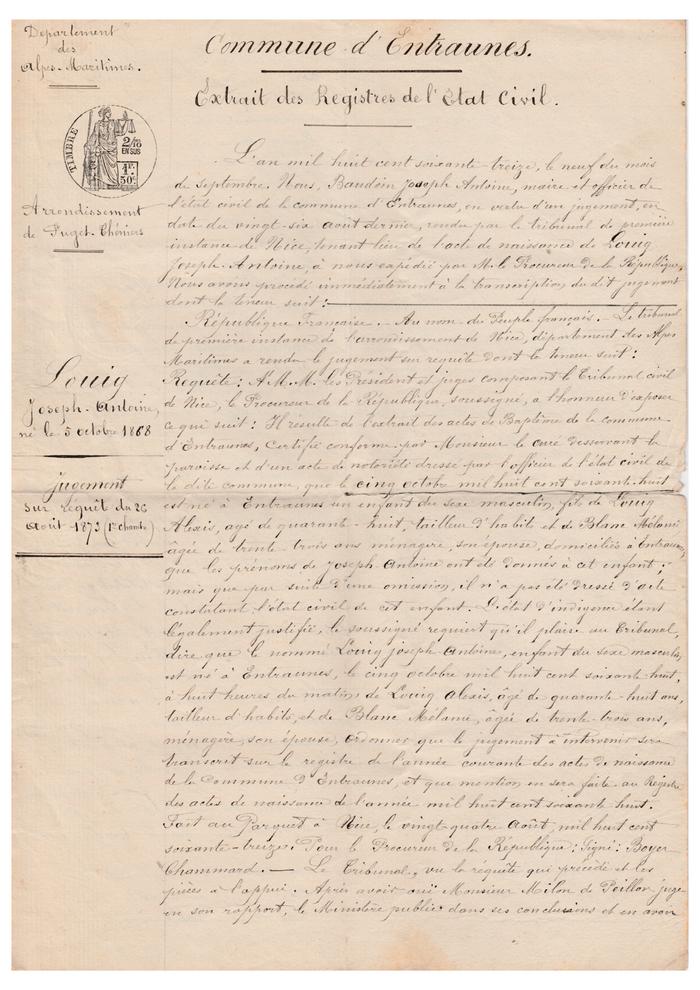 Département
des
Alpes-Maritimes.
Commune d'Entraunes.
Extrait des Registres de l'Etat Civil.
TIMBRE
2/10
EN SUS
1F.
50c.
Arrondissement
de Puget-Théniers
Louiq
Joseph-Antoine,
né le 5 octobre 1868
jugement
sur requêt du 26
Août 1873 (1re chambre)
L'an mil huit cent soixante-treize, le neuf du mois
de septembre. Nous, Baudoin Joseph Antoine, maire et officier de
l'état civil de la commune d'Entraunes, en vertu d'un jugement, en
date du vingt-six août dernier, rendu par le tribunal de première
instance de Nice, tenant lieu de l'acte de naissance de Louiq
Joseph-Antoine, à nous expédié par M. le Procureur de la République,
Nous avons procédé immédiatement à la transcription du dit jugement
dont la teneur suit:
République Française. - Au nom du Peuple français. - Le tribunal
de première instance de l'arrondissement de Nice, département des Alpes
Maritimes a rendu le jugement sur requête dont la teneur suit:
Requête: A M.M. les Président et juges composant le Tribunal civil
de Nice, le Procureur de la République, soussigné, a l'honneur d'exposer
ce qui suit: Il resulte de l'extrait des actes de Baptême de la commune
d'Entraunes, Certifié conforme par Monsieur le curé desservant la
paroisse et d'un acte de notoriété dressé par l'officier de l'état civil de
la dite commune, que le cinq octobre mil huit cent soixante-huit
est né à Entraunes un enfant du sexe masculin, fils de Louiq
Alexis, agé de quarante-huit, tailleur d'habits et de Blanc Mélanie
âgée de trente-trois ans ménagère, son épouse, domiciliés à Entraunes,
que les prénoms de Joseph-Antoine ont été donnés à cet enfant;
mais que par suite d'une omission, il n'a pas été dressé d'acte
constatant l'état civil de cet enfant. L'état d'indigence étant
légalement justifié, le soussigné requiert qu'il plaise au Tribunal,
dire que le nommé Louiq Joseph-Antoine, enfant du sexe masculin,
est né à Entraunes, le cinq octobre mil huit cent soixante-huit,
à huit heures du matin, de Louiq Alexis, âgé de quarante-huit ans,
tailleur d'habits, et de Blanc Mélanie, âgée de trente-trois ans,
ménagère, son épouse, ordonner que le jugement à intervenir sera
transcrit sur le registre de l'année courante des actes de naissance
de la Commune d'Entraunes, et que mention en sera faite au Registre
des actes de naissance de l'année mil huit cent soixante huit.
Fait au Parquet à Nice, le vingt-quatre Août, mil huit cent
soixante-treize. Pour le Procureur de la République: Signé: Boyer
Chammard. - Le Tribunal, vu la requête qui précède et les
pièces à l'appui. Après avoir oui Monsieur Milon de Peillon juge
en son rapport, le Ministère public dans ses conclusions et en avoir